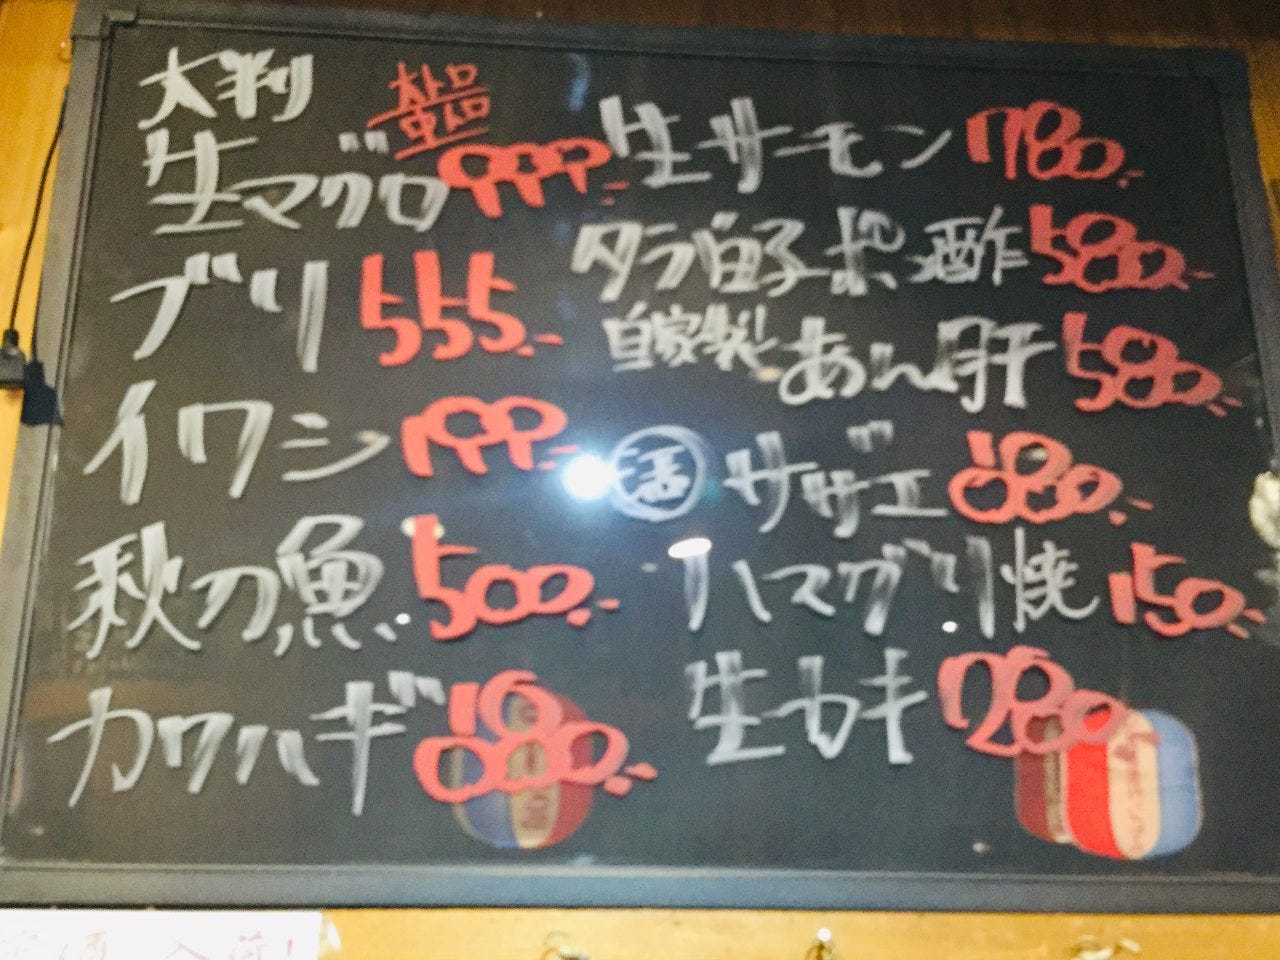 大判
生マグロ 999.-
ブリ 555.-
イワシ 199.-
秋刀魚 500.-
カワハギ 680.-
生サーモン 780.-
タラ白子ポン酢 580.-
自家製 あん肝 580.-
活 サザエ 680.-
ハマグリ焼 150.-
生ガキ 280.-
酒 入荷!